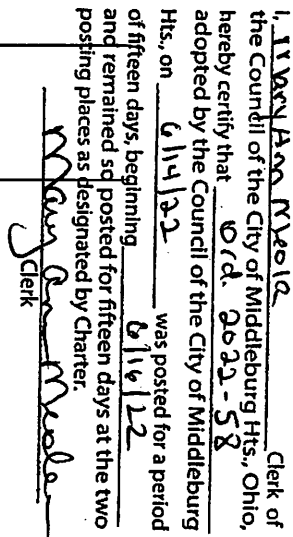 I, Mary Ann Meola Clerk of
the Council of the City of Middleburg Hts., Ohio,
hereby certify that Ord. 2022-58
adopted by the Council of the City of Middleburg
Hts., on 6/14/22 was posted for a period
of fifteen days, beginning 6/16/22
and remained so posted for fifteen days at the two
posting places as designated by Charter.
Mary Ann Meola
Clerk